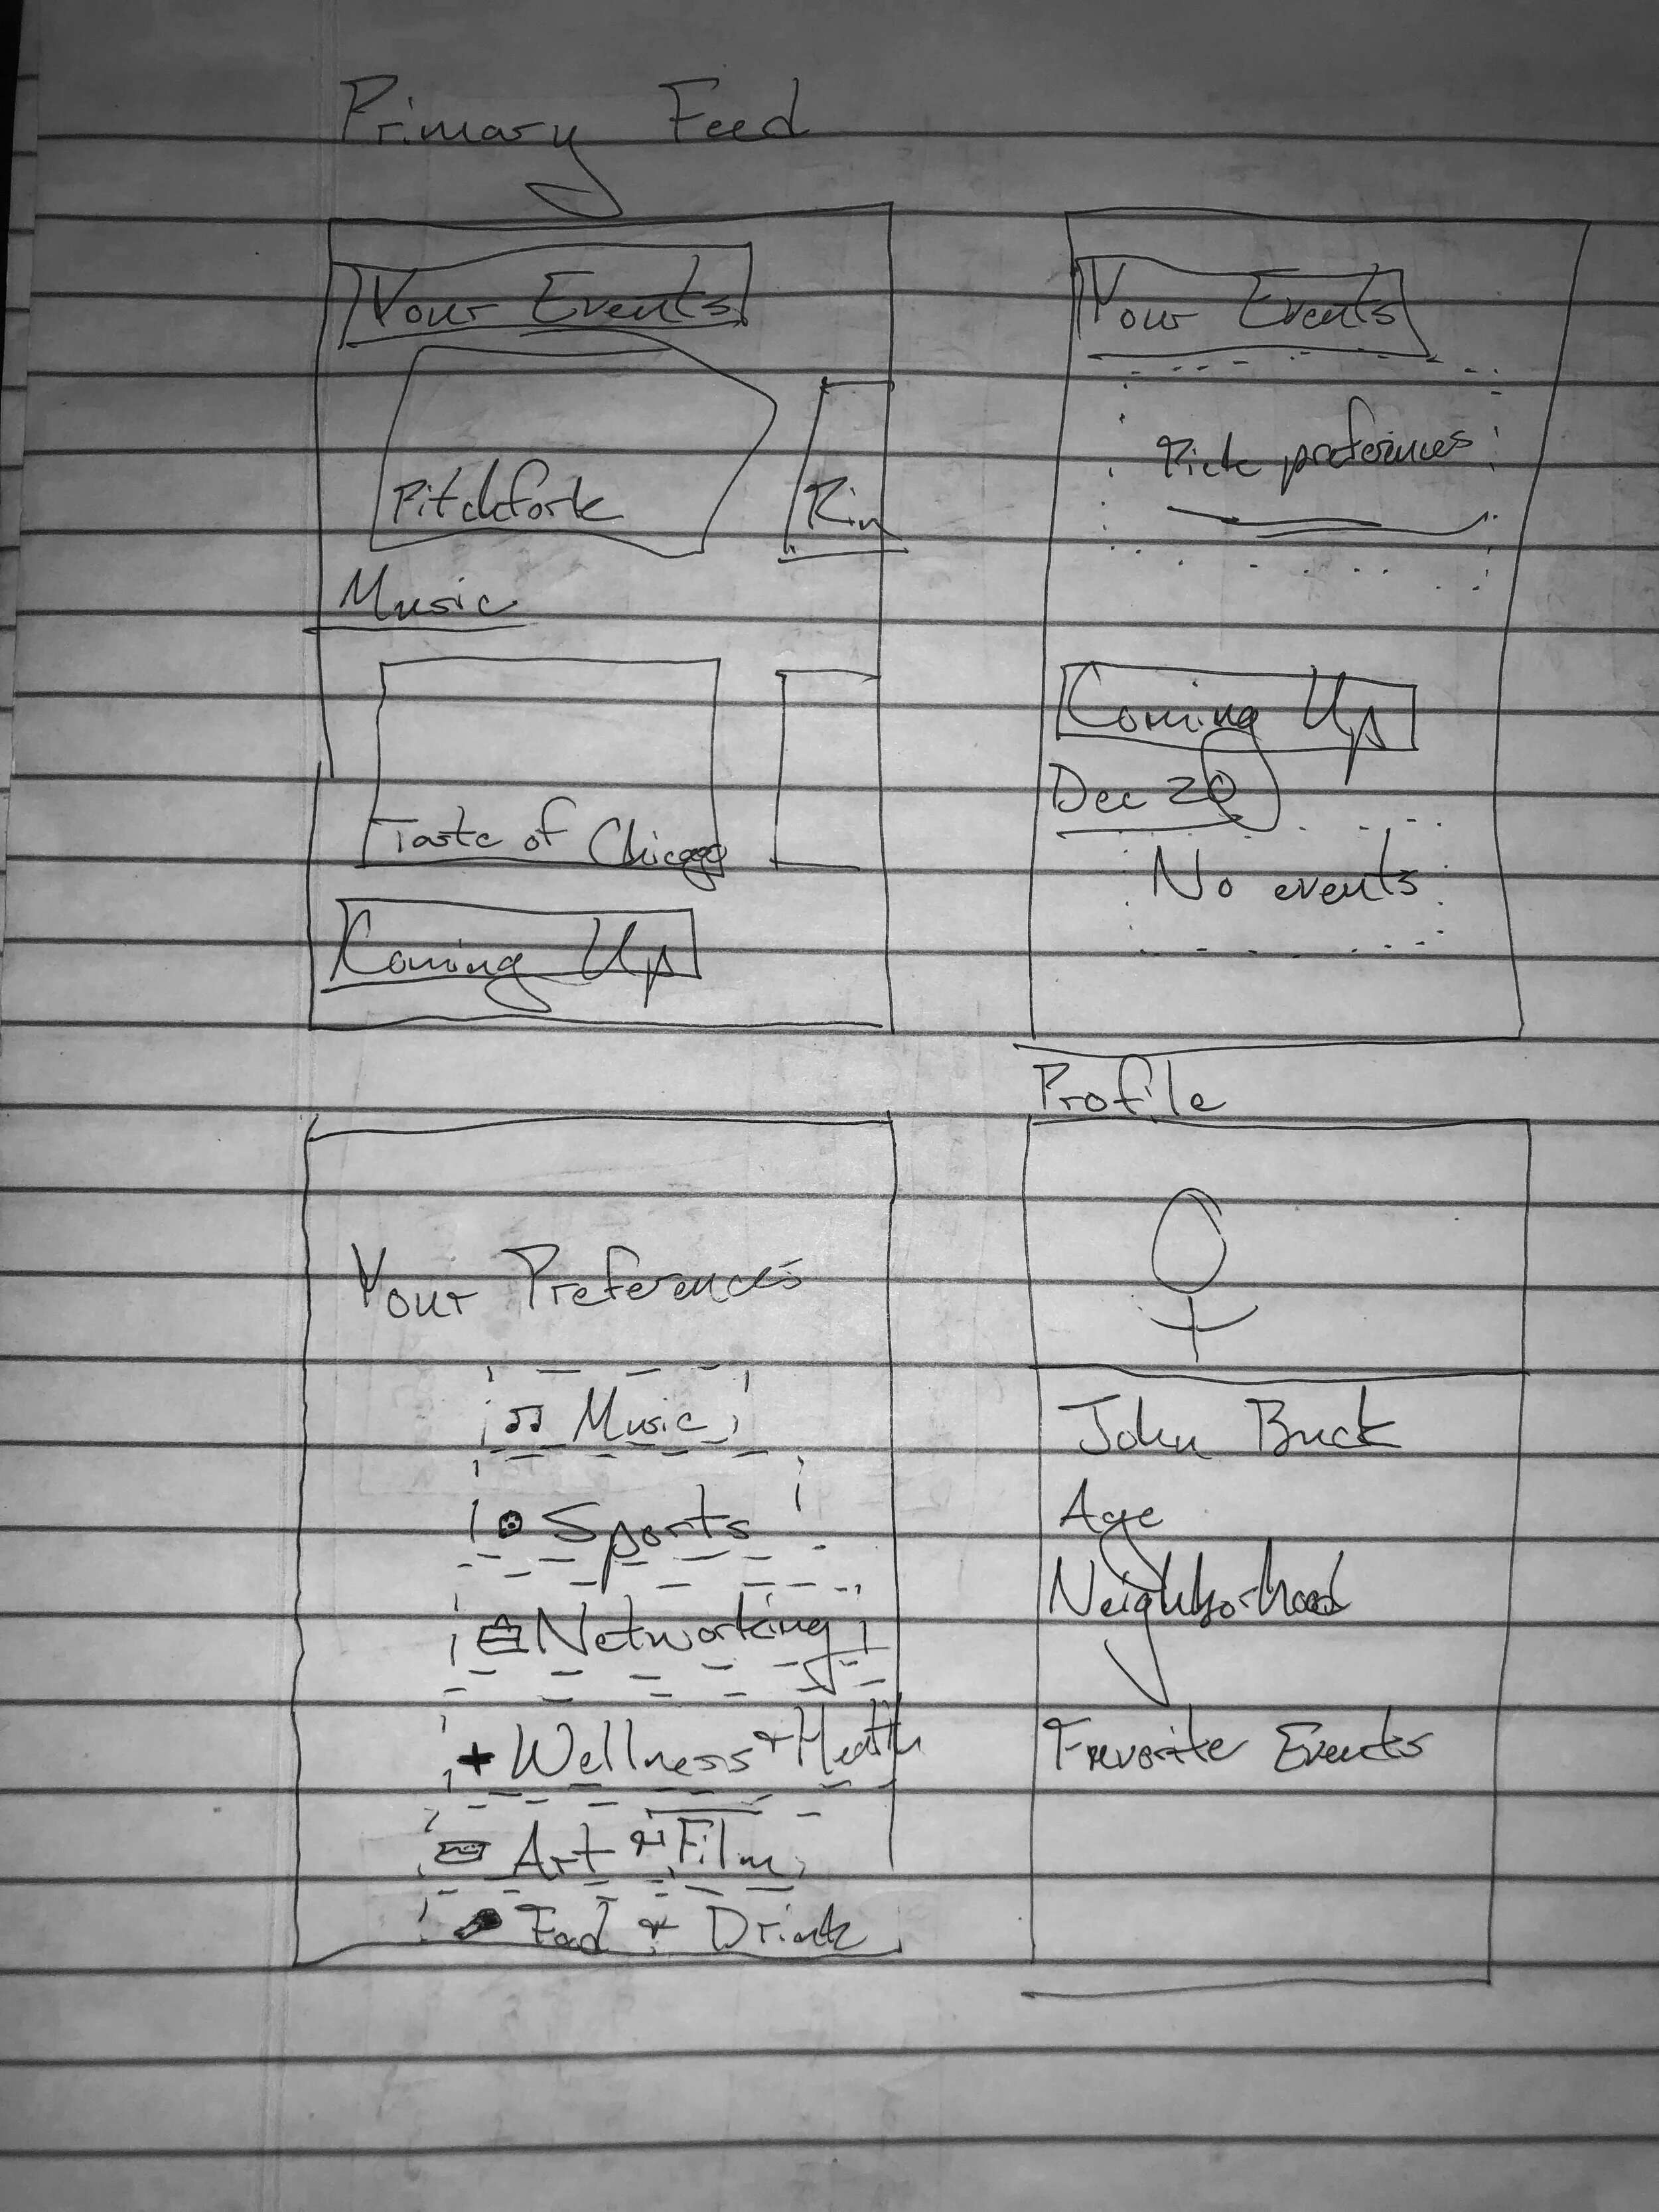 Primary Feed
Your Events
Pitchfork
Rin
Music
Taste of Chicago
Coming Up
Your Events
Pick preferences
Coming Up
Dec 20
No events
Your Preferences
Music
Sports
Networking
Wellness + Health
Art + Film
Food + Drink
Profile
John Buck
Age
Neighborhood
Favorite Events